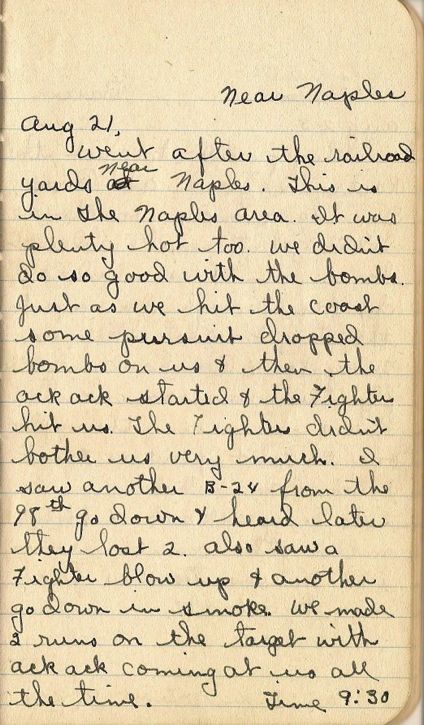 Near Naples
Aug 21,
Went after the railroad
yards at near Naples. This is
in the Naples area. It was
plenty hot too. We didn't
do so good with the bombs.
Just as we hit the coast
some pursuit dropped
bombs on us & then the
ack ack started & the Fighters
hit us. The Fighters didn't
bother us very much. I
saw another B-24 from the
98th go down & heard later
they lost 2. Also saw a
Fighter blow up & another
go down in smoke. We made
2 runs on the target with
ack ack coming at us all
the time. Time 9:30